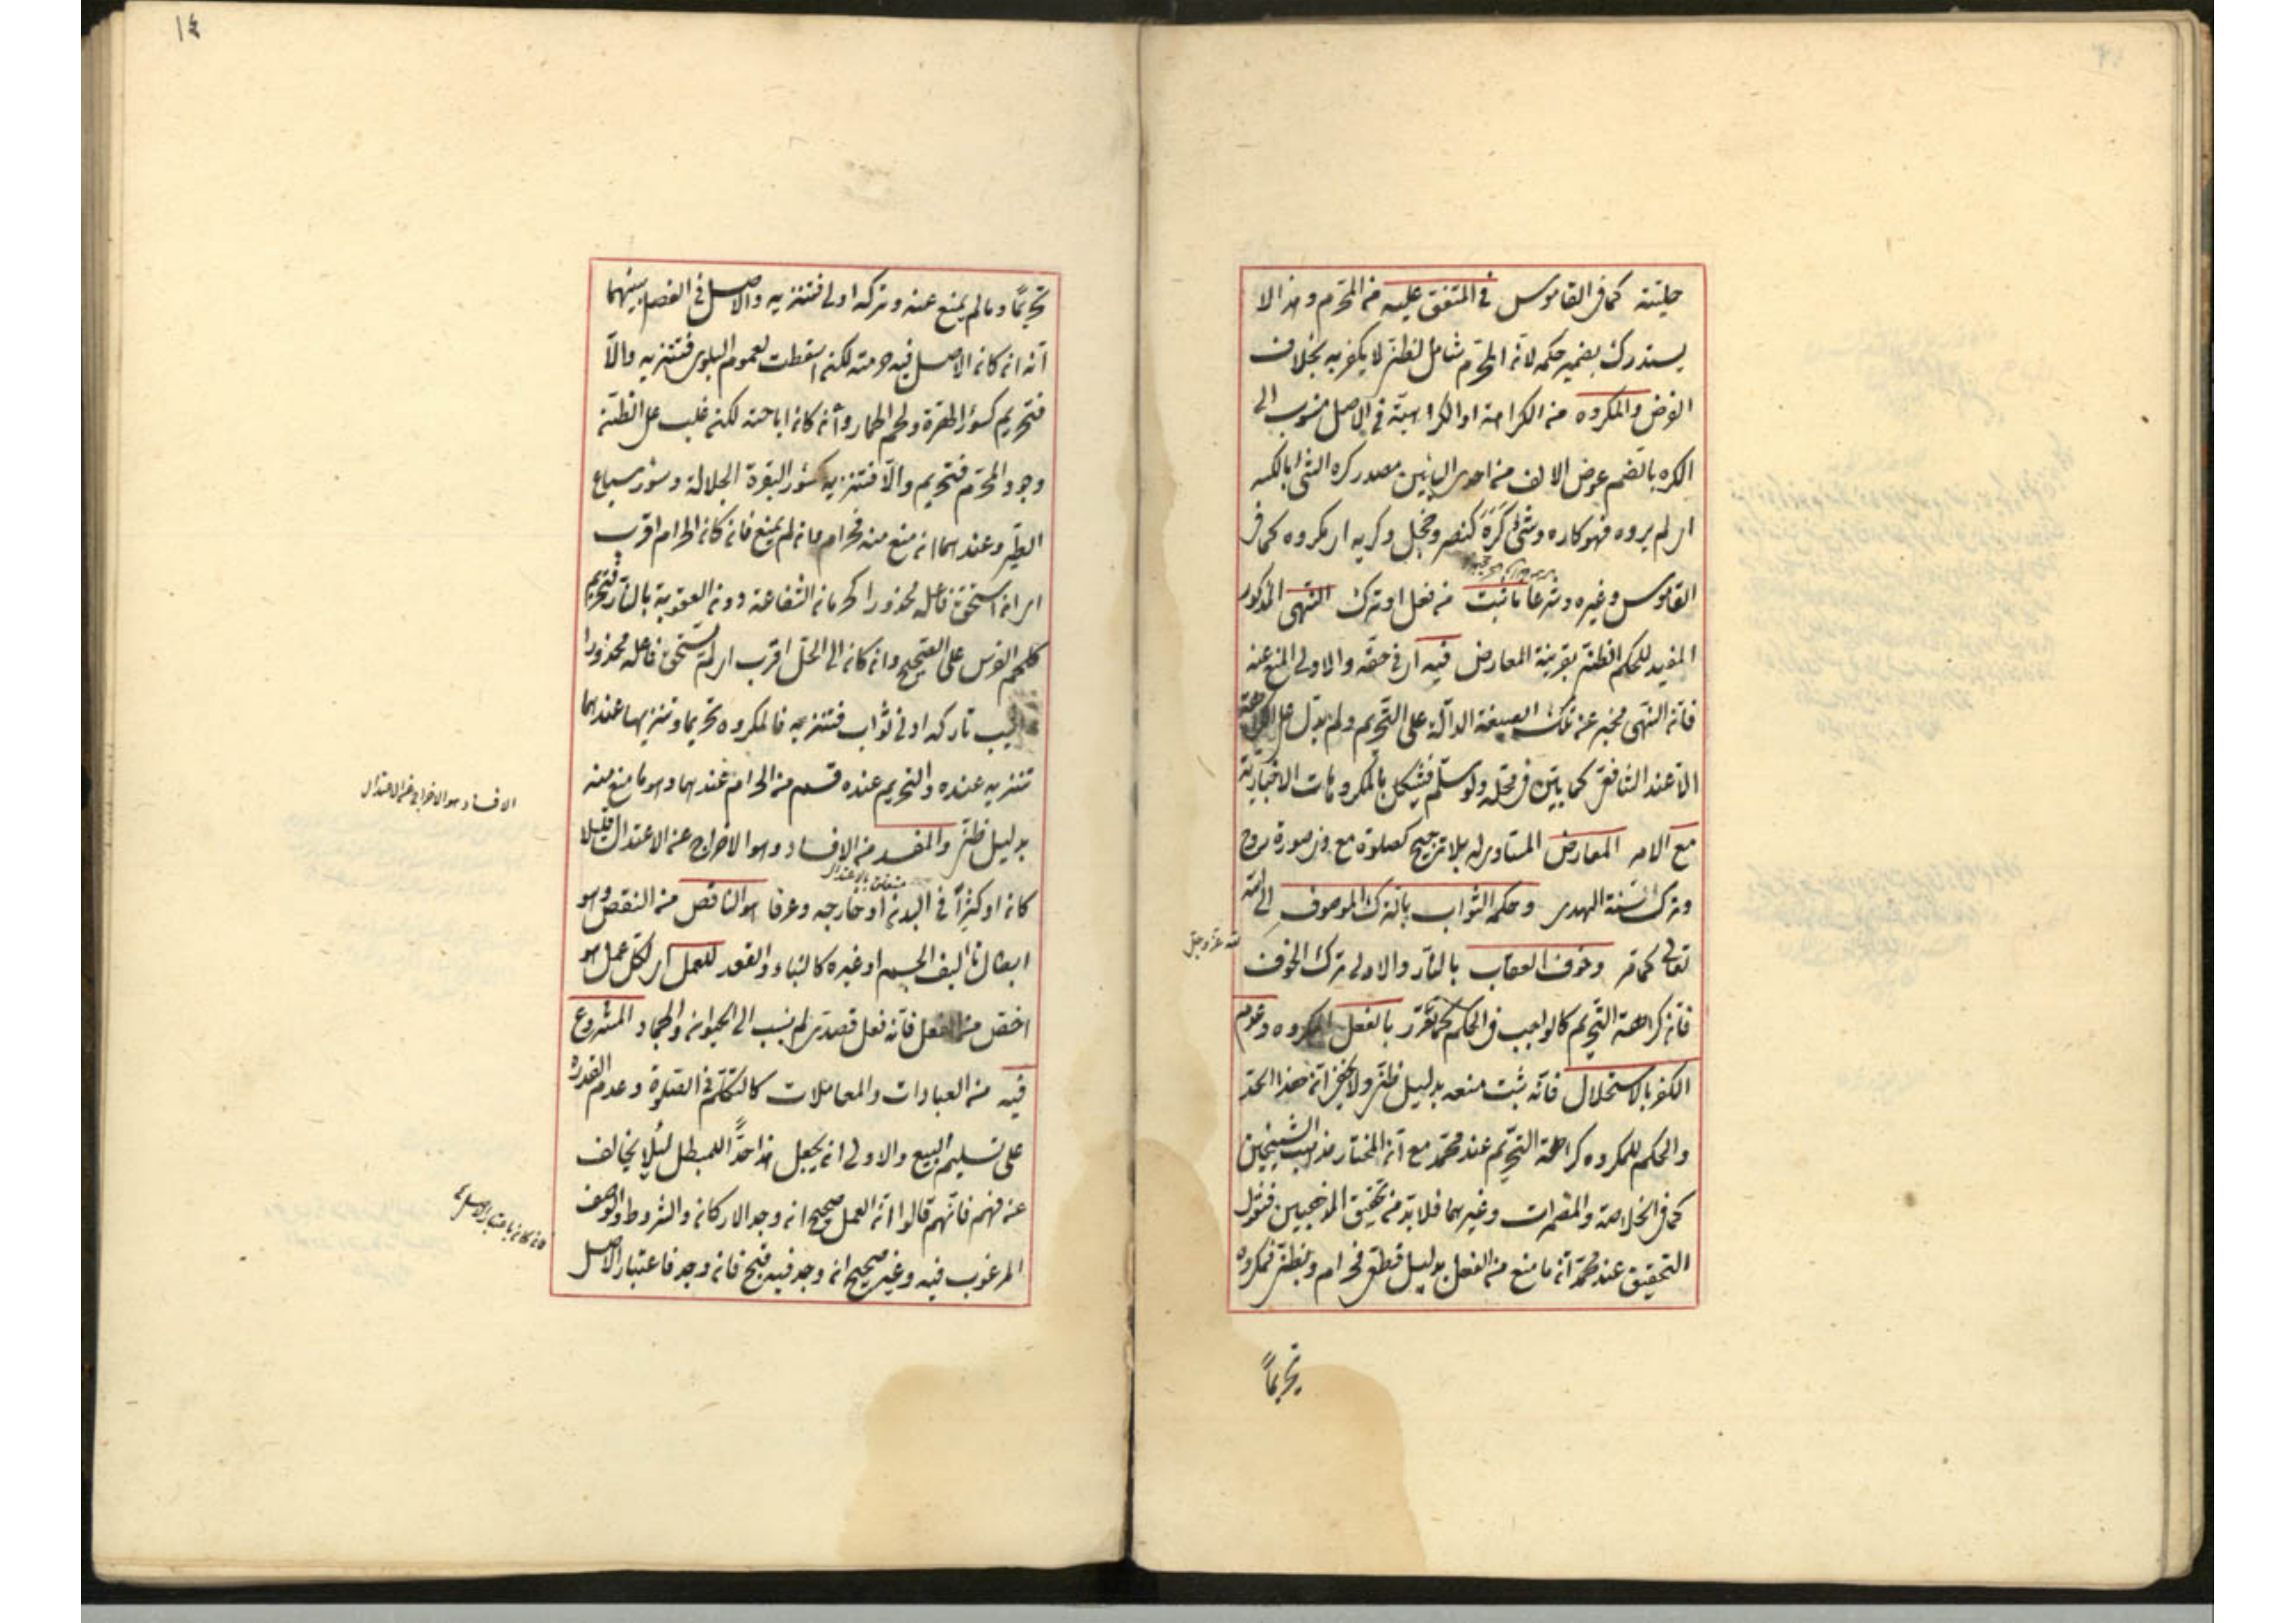 حليته كما في القاموس في المتفق عليه من المحرم وهذا لا
يستدرك بضمير حكمه لأن المحرم شامل لظني لا يكفر به بخلاف
الفرض والمكروه من الكراهة او الكراهية في الاصل منسوب الى
الكره بالضم عوض الالف من احدى اليائين مصدر كره الشئ بالكسر
اي لم يرده فهو كاره وشئ كره كنصر وخجل وكريه اي مكروه كما في
القاموس وغيره وشرعا ما ثبت من فعل او ترك النهى المذكور
المفيد للحكم الظني بقرينة المعارض فيه اي في حقه والاولى المنع عنه
فان النهى مخبر عن تلك الصيغة الدالة على التحريم ولم يدل على الكراهة
الا عند الشافعي كما بين في محله ولو سلم فيشكل بالمكروهات الاختيارية
مع الامر المعارض المتساوى له بلا ترجيح كصلوة مع
وترك سنة الهدى وحكمه الثواب بالترك الموصوف لله
تعالى كما مر وخوف العقاب بالنار والاولى ترك الخوف
لله عز وجل
فان كراهة التحريم كالواجب في الحكم كما تقرر بالفعل المكروه وعدم
الكفر بالاستحلال فانه ثبت منعه بدليل ظني ولا يخفى ان هذا الحد
والحكم للمكروه كراهة التحريم عند محمد مع ان المختار مذهب الشيخين
كما في الخلاصة والمضمرات وغيرهما فلا بد من تحقيق المذهبين فنقول
التحقيق عند محمد ان ما منع من الفعل بدليل قطعي فحرام وبظني فمكروه
تحريماً
١٤
تحريمًا وما لم يمنع عنه وتركه اولى فتنزيه والاصل في الفصل بينهما
انه ان كان الاصل فيه حرمته لكن اسقطت لعموم البلوى فتنزيه والا
فتحريم كسؤر الهرة ولحم الحمار وأن كان اباحته لكن غلب على الظن
وجود المحرم فتحريم والا فتنزيه كسؤر البقرة الجلالة وسؤر سباع
الطير وعندهما ان منع منه فحرام وان لم يمنع فان كان الى الحرام اقرب
اي ان استحق فاعله محذورا كحرمان الشفاعة دون العقوبة بالنار فتحريم
كلحم الفرس على الصحيح وان كان الى الحل اقرب اي لم يستحق فاعله محذورا
تاركه ادنى ثواب فتنزيه فالمكروه تحريما وتنزيها عندهما
تنزيه عنده والتحريم عنده قسم من الحرام عندهما وهو ما منع منه
بدليل ظني والمفسد من الافساد وهو الاخراج عن الاعتدال قليلا
الافساد هو الاخراج عن الاعتدال
متعلق بالاعتدال
كان او كثيرًا في البدن او خارجه وعرفا هو الناقص من النقص وهو
ابطال تاليف الجسم او غيره كالبناء والعقد للعمل اي لكل عمل هو
اخص من الفعل فانه فعل قصدى لم ينسب الى الحيوان والجماد المشروع
فيه من العبادات والمعاملات كالتكلم في الصلوة وعدم القدرة
على تسليم المبيع والاولى ان يجعل هذا حدًّا للمبطل لئلا يخالف
عن فنهم فانهم قالوا ان العمل صحيح ان وجد الاركان والشروط والوصف
المرغوب فيه وغير صحيح ان وجد فيه قبح فان وجد فاعتبار الاصل